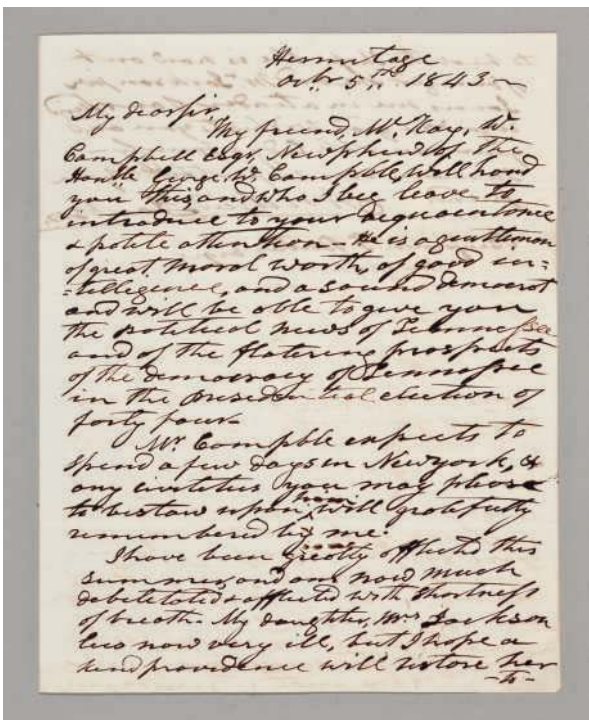 Hermitage
Octbr 5th 1843 ~
My dear sir,
My friend, Mr. Kay, W.
Campbell Esqr, Newphew of the
Honble George W. Campble, will hand
you this, and who I beg leave to
introduce to your acquaentence
& polite attention - He is a gentleman
of great moral worth, of good in=
=telligence, and a sound democrat
and will be able to give you
the political news of Tennessee
and of the flatering prospects
of the democracy of Tennessee
in the presedential election of
forty four -
Mr. Campble expects to
spend a few days in Newyork, &
any civilities you may please
to bestow upon him, will gratefully
remembered by me.
I have been greatly afflicted this
summer, and am now much
debilitated & afflicted with shortness
of breath - My daughter, Mrs Jackson
lies now very ill, but I hope a
kind providence will restore her
- to -